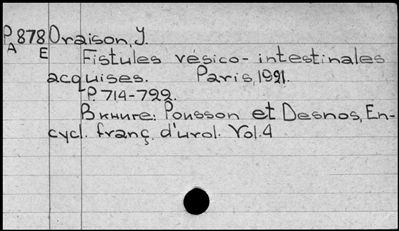 P 878 Oraison, J.
A E Fistules vésico-intestinales
acquises. Paris, 1921.
P. 714-722.
В книге: Pousson et Desnos, En-
cycl. franç. d'urol. Vol. 4